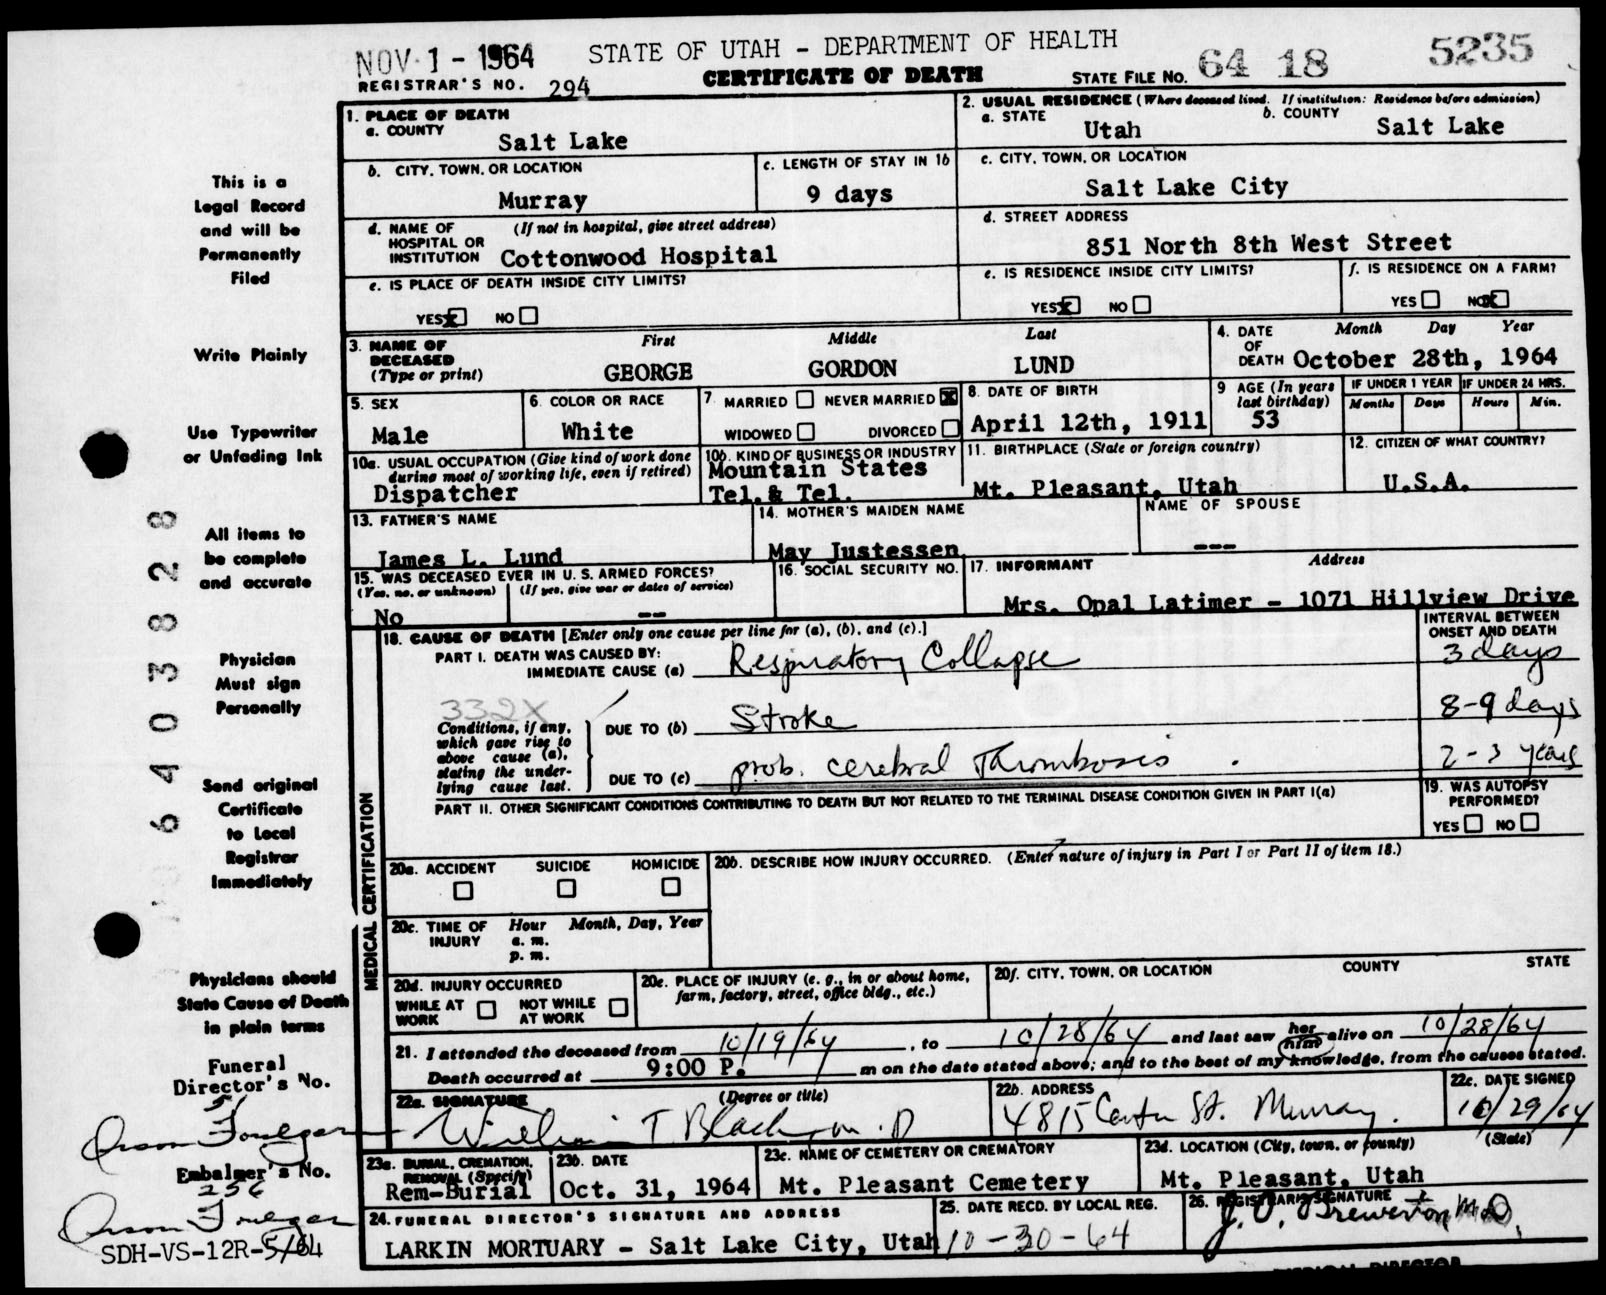 NOV 1 - 1964 STATE OF UTAH - DEPARTMENT OF HEALTH 64 18 5235
REGISTRAR'S NO. 294 CERTIFICATE OF DEATH STATE FILE NO.
1. PLACE OF DEATH
a. COUNTY
Salt Lake
2. USUAL RESIDENCE (Where deceased lived. If institution: Residence before admission)
a. STATE b. COUNTY
Utah Salt Lake
b. CITY, TOWN, OR LOCATION
Murray
c. LENGTH OF STAY IN 1b
9 days
c. CITY, TOWN, OR LOCATION
Salt Lake City
d. NAME OF HOSPITAL OR INSTITUTION (If not in hospital, give street address)
Cottonwood Hospital
d. STREET ADDRESS
851 North 8th West Street
e. IS PLACE OF DEATH INSIDE CITY LIMITS?
YES X NO
e. IS RESIDENCE INSIDE CITY LIMITS?
YES X NO
f. IS RESIDENCE ON A FARM?
YES NO X
3. NAME OF DECEASED (Type or print)
First Middle Last
GEORGE GORDON LUND
4. DATE OF DEATH Month Day Year
October 28th, 1964
5. SEX
Male
6. COLOR OR RACE
White
7. MARRIED NEVER MARRIED X
WIDOWED DIVORCED
8. DATE OF BIRTH
April 12th, 1911
9 AGE (In years last birthday)
53
IF UNDER 1 YEAR IF UNDER 24 HRS.
Months Days Hours Min.
10a. USUAL OCCUPATION (Give kind of work done during most of working life, even if retired)
Dispatcher
10b. KIND OF BUSINESS OR INDUSTRY
Mountain States
Tel. & Tel.
11. BIRTHPLACE (State or foreign country)
Mt. Pleasant, Utah
12. CITIZEN OF WHAT COUNTRY?
U.S.A.
13. FATHER'S NAME
James L. Lund
14. MOTHER'S MAIDEN NAME
May Justessen
NAME OF SPOUSE
---
15. WAS DECEASED EVER IN U. S. ARMED FORCES?
(Yes, no, or unknown) (If yes, give war or dates of service)
No --
16. SOCIAL SECURITY NO.
17. INFORMANT Address
Mrs. Opal Latimer - 1071 Hillview Drive
18. CAUSE OF DEATH [Enter only one cause per line for (a), (b), and (c).]
INTERVAL BETWEEN ONSET AND DEATH
PART I. DEATH WAS CAUSED BY:
IMMEDIATE CAUSE (a) Respiratory Collapse 3 days
332X
Conditions, if any, which gave rise to above cause (a), stating the underlying cause last.
DUE TO (b) Stroke 8-9 days
DUE TO (c) prob. cerebral Thrombosis. 2-3 years
PART II. OTHER SIGNIFICANT CONDITIONS CONTRIBUTING TO DEATH BUT NOT RELATED TO THE TERMINAL DISEASE CONDITION GIVEN IN PART I(a)
19. WAS AUTOPSY PERFORMED?
YES NO
MEDICAL CERTIFICATION
20a. ACCIDENT SUICIDE HOMICIDE
20b. DESCRIBE HOW INJURY OCCURRED. (Enter nature of injury in Part I or Part II of item 18.)
20c. TIME OF INJURY Hour Month, Day, Year
a. m.
p. m.
20d. INJURY OCCURRED
WHILE AT WORK NOT WHILE AT WORK
20e. PLACE OF INJURY (e. g., in or about home, farm, factory, street, office bldg., etc.)
20f. CITY, TOWN, OR LOCATION COUNTY STATE
21. I attended the deceased from 10/19/64, to 10/28/64 and last saw her him alive on 10/28/64
Death occurred at 9:00 P. m on the date stated above; and to the best of my knowledge, from the causes stated.
22a. SIGNATURE (Degree or title)
William T Black M.D
22b. ADDRESS
4815 Center St. Murray.
22c. DATE SIGNED
10/29/64
23a. BURIAL, CREMATION, REMOVAL (Specify)
Rem-Burial
23b. DATE
Oct. 31, 1964
23c. NAME OF CEMETERY OR CREMATORY
Mt. Pleasant Cemetery
23d. LOCATION (City, town, or county) (State)
Mt. Pleasant, Utah
24. FUNERAL DIRECTOR'S SIGNATURE AND ADDRESS
LARKIN MORTUARY - Salt Lake City, Utah
25. DATE RECD. BY LOCAL REG.
10-30-64
26. REGISTRAR'S SIGNATURE
J. O. Brewerton M.D.
MEDICAL DIRECTOR
This is a
Legal Record
and will be
Permanently
Filed
Write Plainly
Use Typewriter
or Unfading Ink
All items to
be complete
and accurate
Physician
Must sign
Personally
Send original
Certificate
to Local
Registrar
Immediately
Physicians should
State Cause of Death
in plain terms
Funeral
Director's No.
51
Orson Foulger
Embalmer's No.
256
Orson Foulger
SDH-VS-12R-5/64
6403828